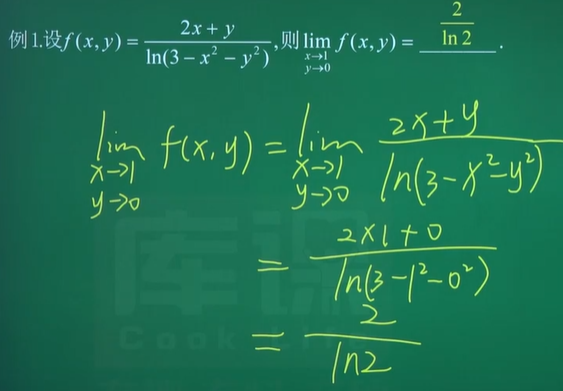 例1.设f(x,y)=\frac{2x+y}{\ln(3-x^2-y^2)},则\lim_{x→1 y→0} f(x,y)=\frac{2}{\ln 2}.
\lim_{x→1 y→0} f(x,y)=\lim_{x→1 y→0} \frac{2x+y}{\ln(3-x^2-y^2)}
=\frac{2×1+0}{\ln(3-1^2-0^2)}
=\frac{2}{\ln2}
库课
Cook Life